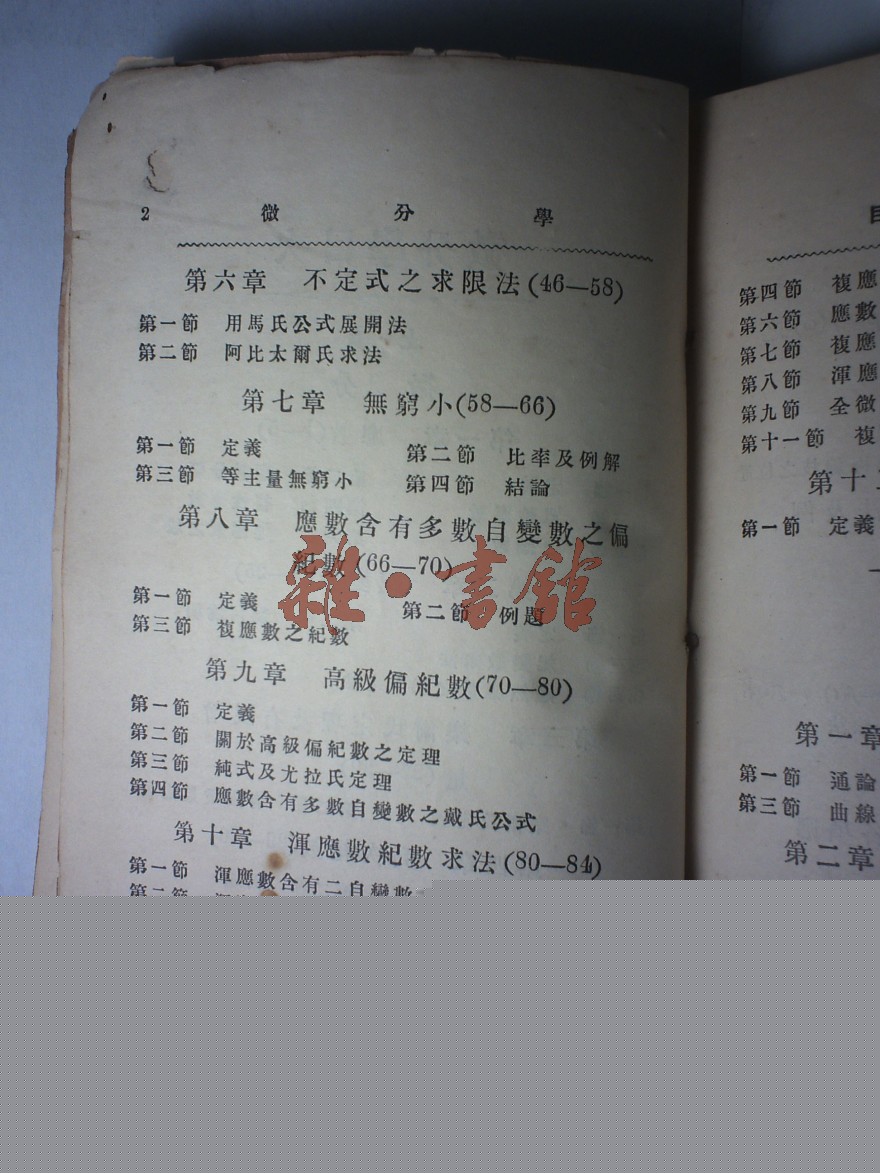 2 微 分 學
第六章 不定式之求限法(46—58)
第一節 用馬氏公式展開法
第二節 阿比太爾氏求法
第七章 無窮小(58—66)
第一節 定義 第二節 比率及例解
第三節 等主量無窮小 第四節 結論
第八章 應數含有多數自變數之偏
紀數(66—70)
第一節 定義 第二節 例題
第三節 複應數之紀數
第九章 高級偏紀數(70—80)
第一節 定義
第二節 關於高級偏紀數之定理
第三節 純式及尤拉氏定理
第四節 應數含有多數自變數之戴氏公式
第十章 渾應數紀數求法(80—84)
第一節 渾應數含有二自變數
雜·書館
目
第四節 複應
第六節 應數
第七節 複應
第八節 渾應
第九節 全微
第十一節 複
第十
第一節 定義
第一章
第一節 通論
第三節 曲線
第二章